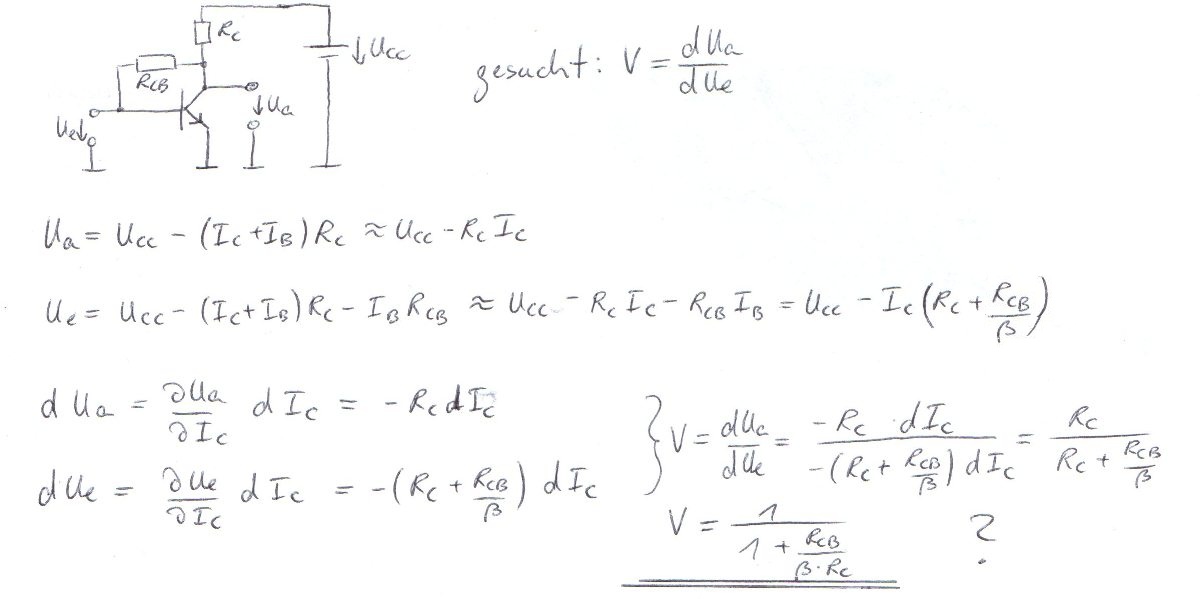 R_C
↓U_CC
R_CB
U_e↓
↓U_a
gesucht: V = dU_a/dU_e
U_a = U_CC - (I_C + I_B) R_C ≈ U_CC - R_C I_C
U_e = U_CC - (I_C + I_B) R_C - I_B R_CB ≈ U_CC - R_C I_C - R_CB I_B = U_CC - I_C (R_C + R_CB/β)
dU_a = ∂U_a/∂I_C dI_C = -R_C dI_C
dU_e = ∂U_e/∂I_C dI_C = -(R_C + R_CB/β) dI_C
} V = dU_a/dU_e = -R_C · dI_C / -(R_C + R_CB/β) dI_C = R_C / (R_C + R_CB/β)
V = 1 / (1 + R_CB/(β·R_C)) ?